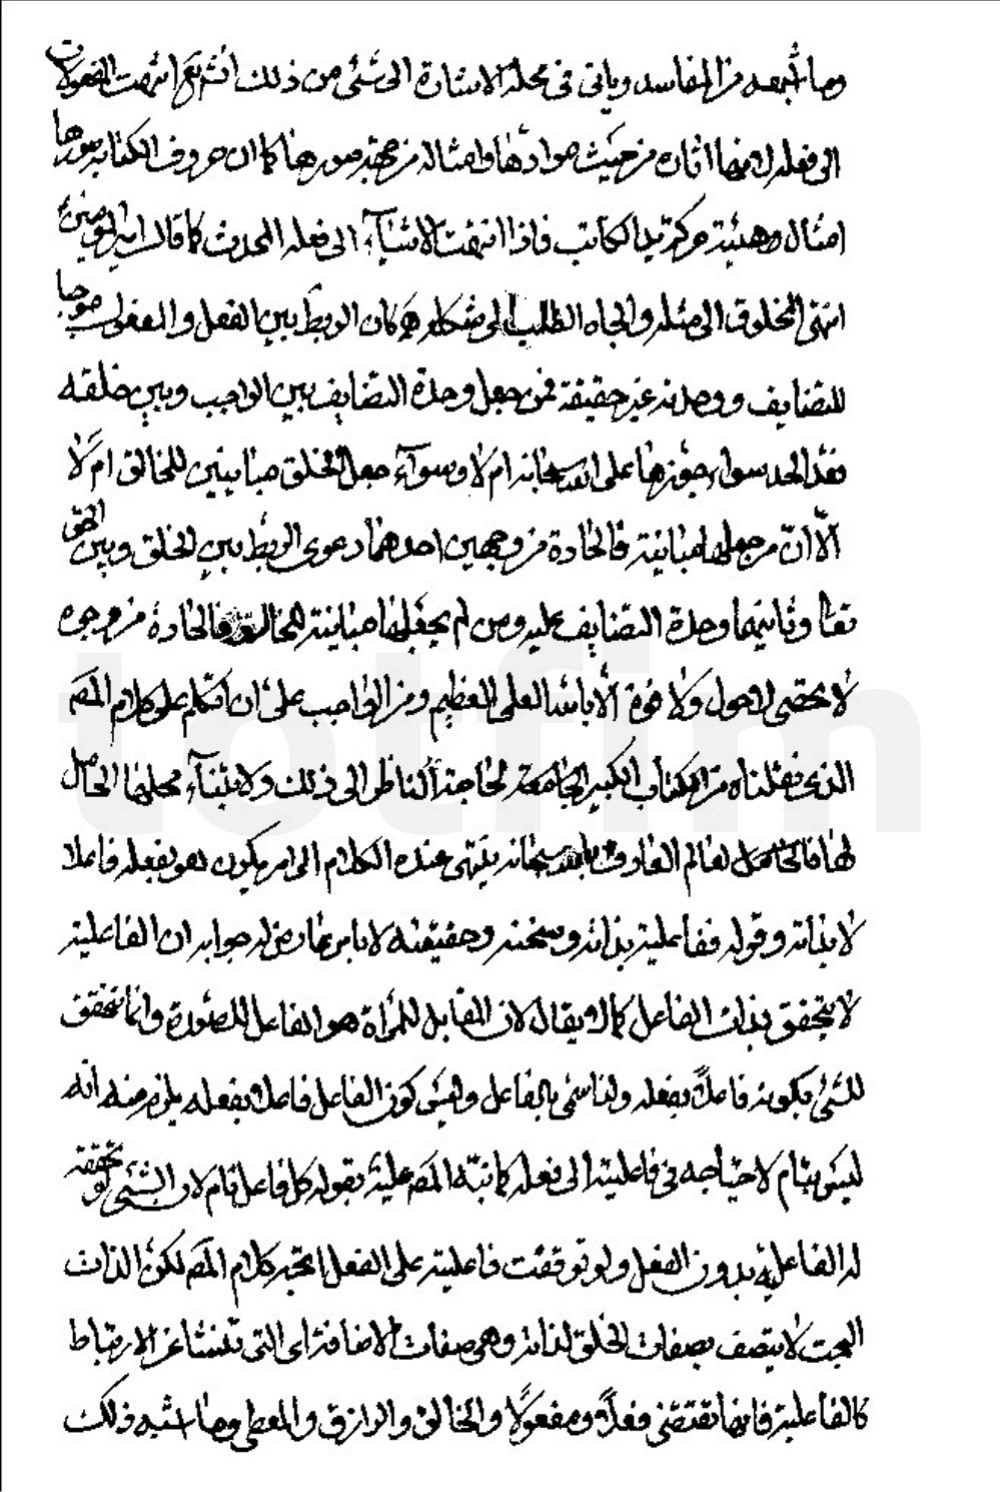 وما أشبهه من المفاسد وياتى فى محله الاشارة الى شئ من ذلك انشءتع انتهت المفعولات
الى فعله لانها اثاره من حيث موادّها وامثاله من جهة صورها كما ان حروف الكتابة صورها
امثال وهيئة حركة يد الكاتب فاذا انتهت الاشيآء الى فعله المحدث كما قال امير المؤمنين ع
انتهى المخلوق الى مثله والجاه الطلب الى شكله كان الربط بين الفعل والمفعول موجبا
للتضايف ووصلة غير حقيقة فمن جعل وحدة التضايف بين الواجب وبين خلقه
فقد الحد سواء جوّزها على الله سبحانه ام لا وسوآء جعل الخلق مباينين للخالق ام لا
الّا انّ من جعلها مباينة فالحاده من وجهين احدهما دعوى الربط بين الخلق وبين الحق
تعالى وثانيهما وحدة التضايف عليه ومن لم يجعلها مباينة للخالق فالحاده من وجوه
لا تحصى لاحول ولا قوة الّا بالله العلى العظيم ومن الواجب على ان اتكلم على كلام المصـ
الذى نقلناه من الكتاب الكبير لحاجة الناظر الى ذلك ولابتنآء محلها الحاصل
لها فالحاصل لعالم العارف بالله سبحانه ينتهى عنده الكلام الى امر يكون هو بفعله فاعلا
لا بذاته وقوله ففاعليته بذاته وسنخه وحقيقته لا بامر عارض له جوابه ان الفاعلية
لا تتحقق بذات الفاعل كما لا يقال لان المقابل للمرأة هو الفاعل للصّورة وانما تتحقق
للشئ بكونه فاعلاً بفعله ولذا سمّى بالفاعل وليس كون الفاعل فاعلا بفعله يلزم منه انّه
ليس بتام لاحتياجه فى فاعليته الى فعله كما نبّه المصـ عليه بقوله كل فاعل تام لان الشئ لا تحققه
له الفاعلية بدون الفعل ولو توقفت فاعليته على الفعل اتّجه كلام المصـ لكن الذات
البحت لا يتصف بصفات الخلق لذاته وهى صفات الاضافة اى التى تنشا عن الارتباط
كالفاعلية فانها تقتضى فعلاً ومفعولًا والخالق والرازق والمعطى وما اشبه ذلك